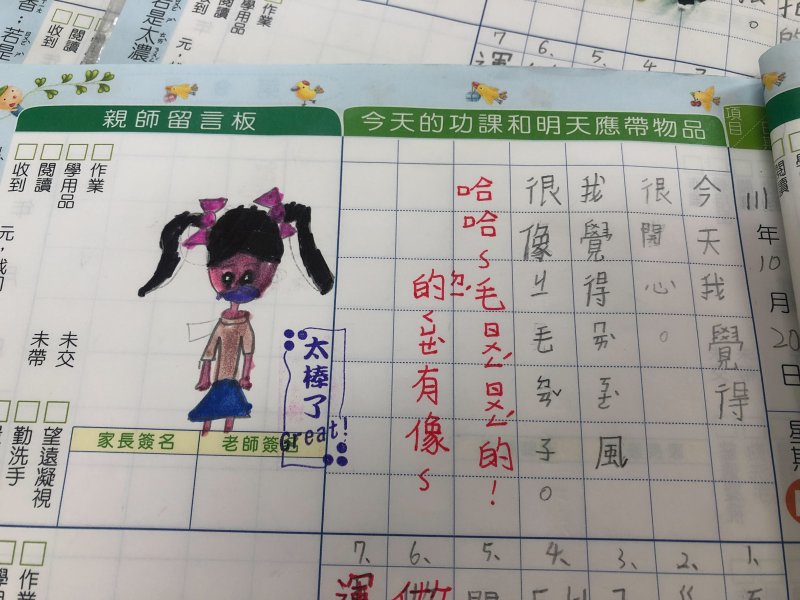 親師留言板
今天的功課和明天應帶物品
項目
111年10月20日
星期
今天我覺得
很開心。
我覺得 風
很像ㄓ毛 子。
哈哈~毛 的!
的 有像~
作業
學用品
閱讀
收到
元,我們
未交
未帶
太棒了
Great!
望遠凝視
勤洗手
家長簽名
老師簽名
1、
2、
3、
4、
5、
6、
7、
運
作業
學用品
閱讀
收到
若是太濃